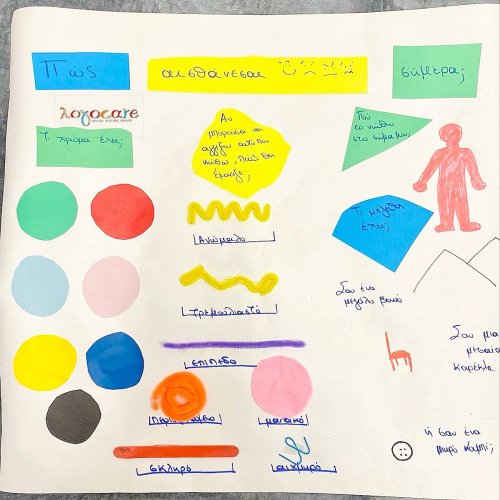 Πώς
αισθάνεσαι
σήμερα;
λογοcare
Τι χρώμα έχει;
Αν
μπορούσα να
αγγίξω αυτό που
νιώθω, πώς θα
έμοιαζε;
Πού
το νιώθω
στο σώμα μου;
Τι μέγεθος
έχει;
Ανώμαλο
τρεμουλιαστό
επίπεδο
μαλακό
σκληρό
αιχμηρό
Σαν ένα
μεγάλο βουνό
Σαν μια
μεσαία
καρέκλα
ή σαν ένα
μικρό κουμπί;